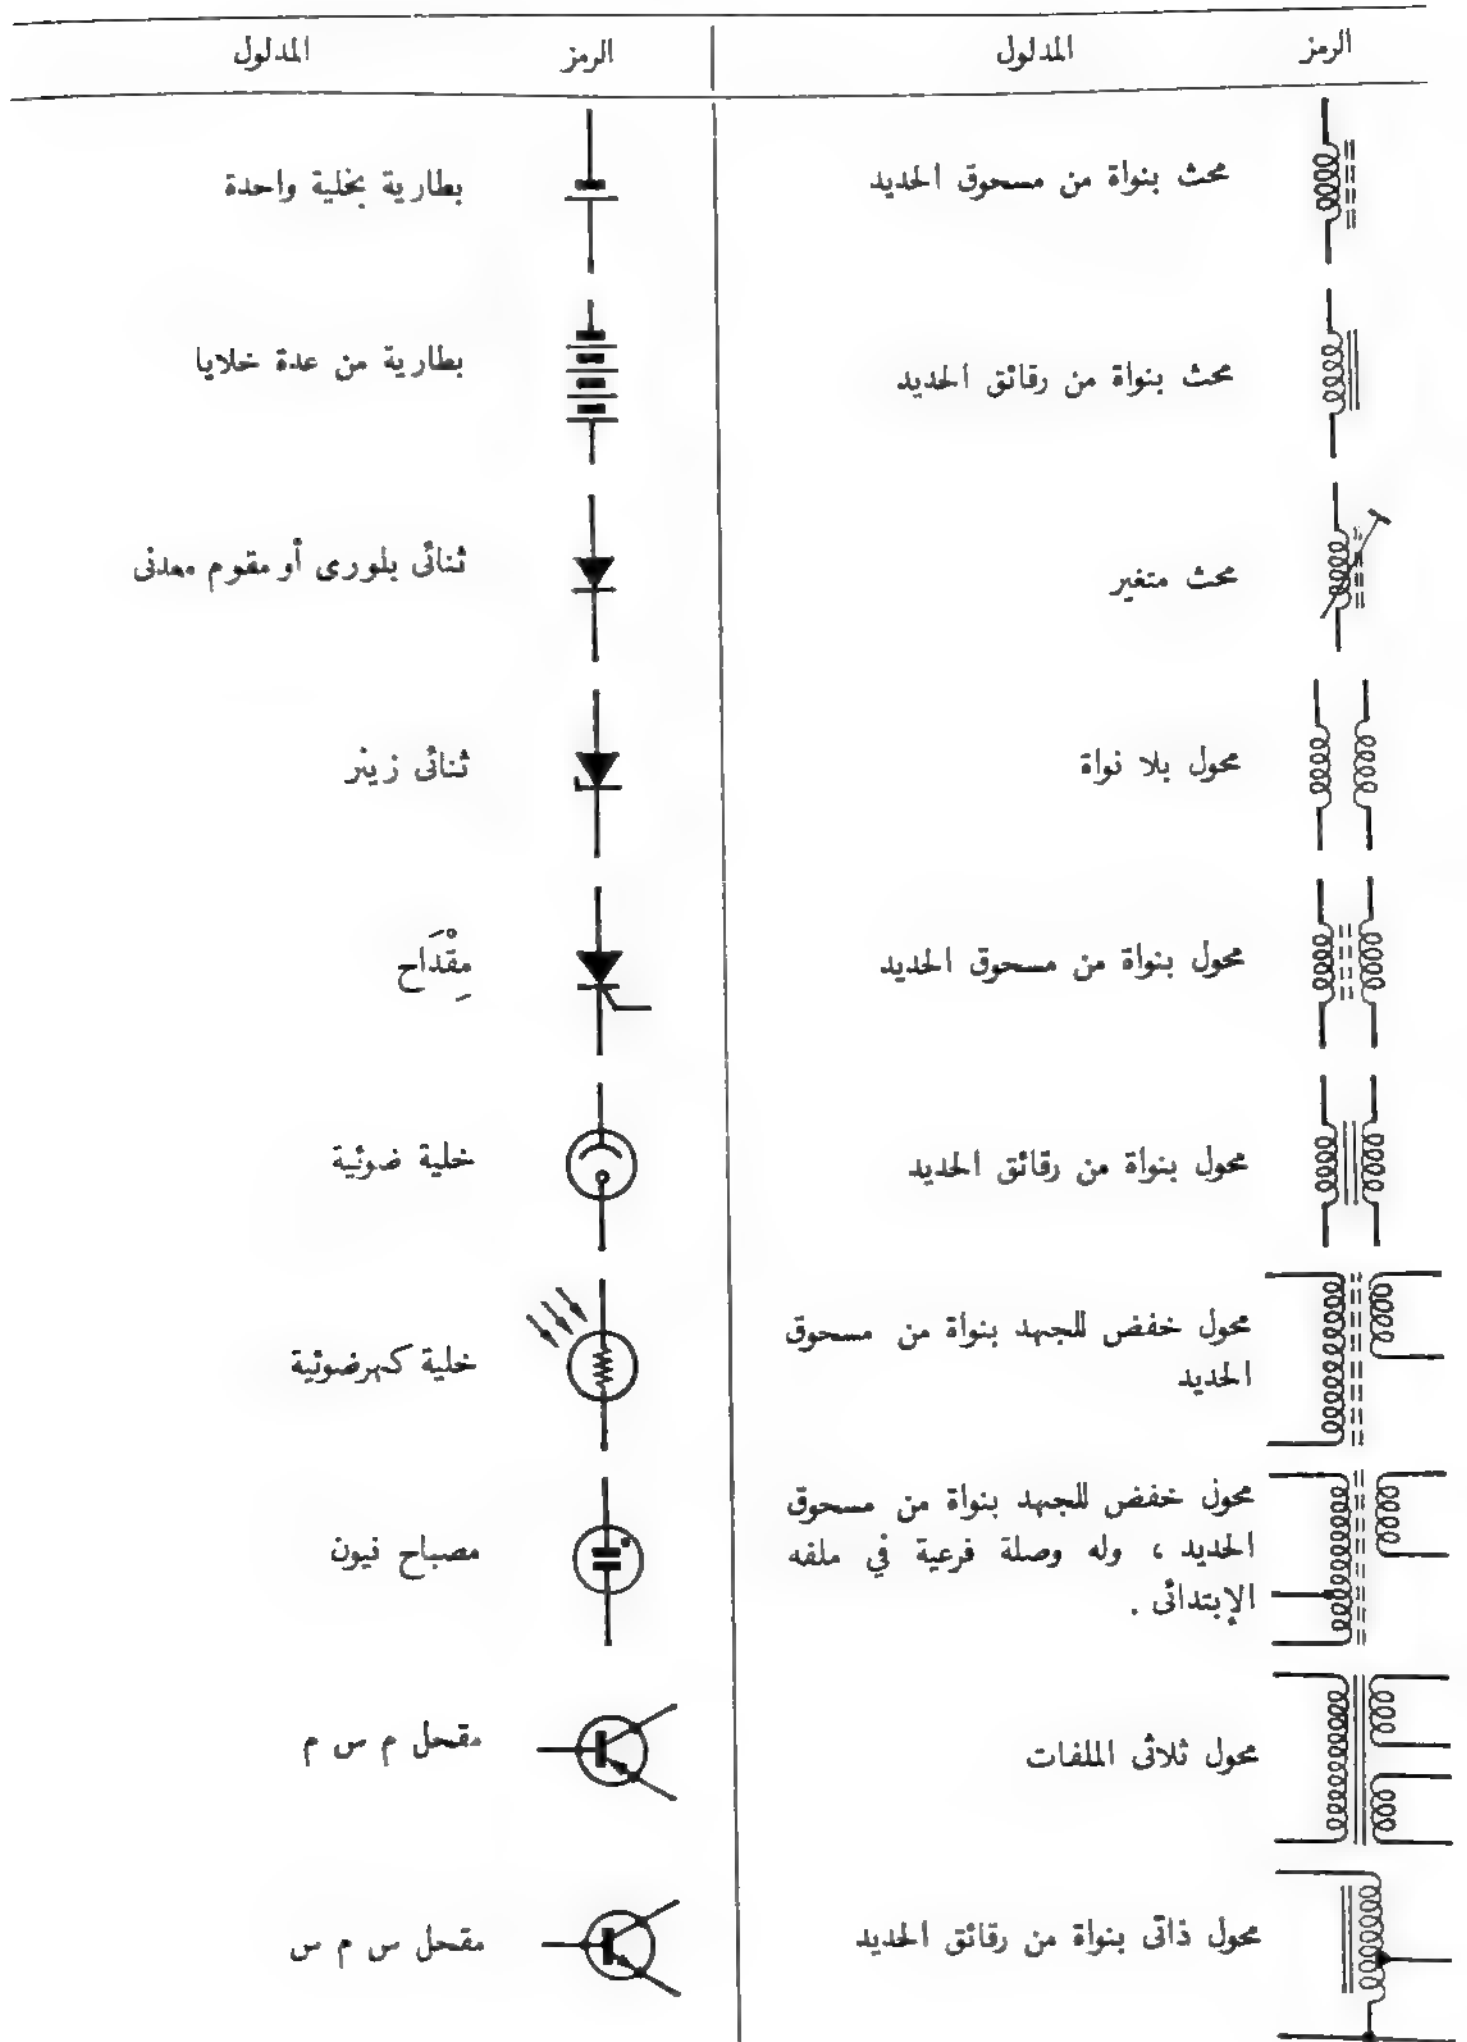 الرمز
المدلول
محث بنواة من مسحوق الحديد
محث بنواة من رقائق الحديد
محث متغير
محول بلا نواة
محول بنواة من مسحوق الحديد
محول بنواة من رقائق الحديد
محول خفض للجهد بنواة من مسحوق
الحديد
محول خفض للجهد بنواة من مسحوق
الحديد ، وله وصلة فرعية في ملفه
الإبتدائى .
محول ثلاثى الملفات
محول ذاتى بنواة من رقائق الحديد
الرمز
المدلول
بطارية بخلية واحدة
بطارية من عدة خلايا
ثنائى بلورى أو مقوم معدنى
ثنائى زينر
مِقْدَاح
خلية ضوئية
خلية كهرضوئية
مصباح نيون
مقحل م س م
مقحل س م س